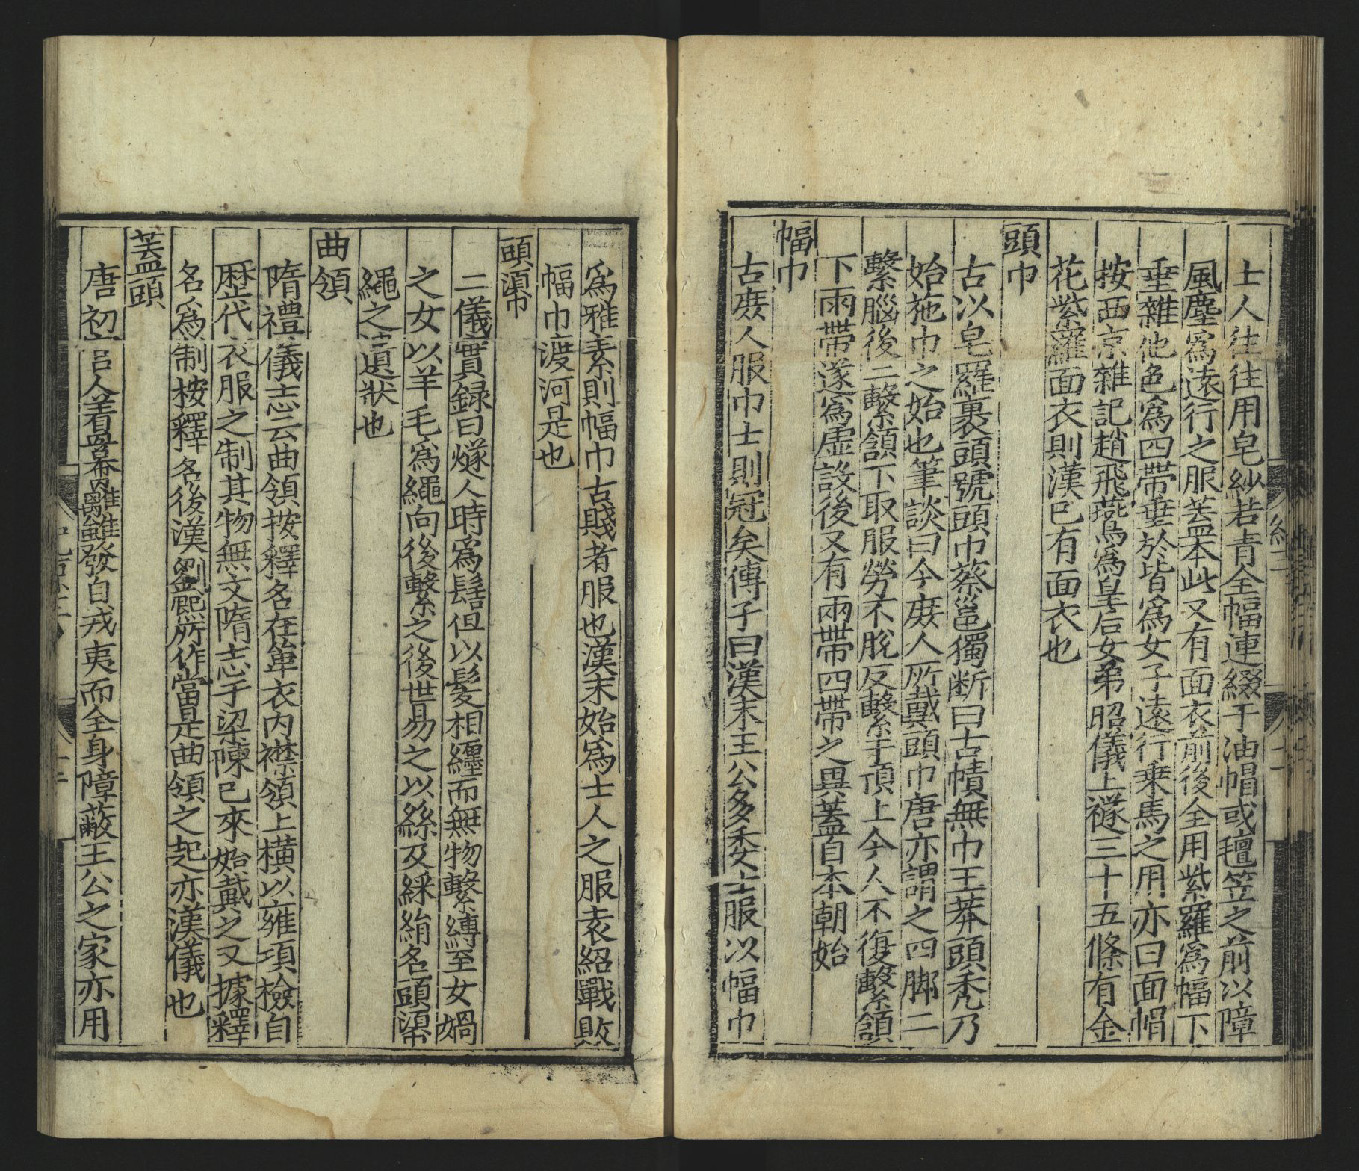 士人往往用皂紗若青全幅連綴于油帽或氊笠之前以障
風塵爲遠行之服蓋本此又有面衣前後全用紫羅爲幅下
垂雜他色爲四帶垂於背爲女子遠行乗馬之用亦曰面帽
按西京雜記趙飛燕爲皇后女弟昭儀上襚三十五條有金
花紫羅面衣則漢已有面衣也
頭巾
古以皂羅裹頭號頭巾蔡邕獨断曰古幘無巾王莽頭禿乃
始施巾之始也筆談曰今庻人所戴頭巾唐亦謂之四脚二
繫腦後二繫頷下取服勞不脫反繫于頂上今人不復繫頷
下兩帶遂爲虛設後又有兩帶四帶之異蓋自本朝始
幅巾
古庻人服巾士則冠矣傅子曰漢末王公多委士服以幅巾
爲雅素則幅巾古賎者服也漢末始爲士人之服袁紹戰敗
幅巾渡河是也
頭𢄼
二儀實録曰燧人時爲髻但以髮相纒而無物繫縛至女媧
之女以羊毛爲繩向後繫之後世易之以絲及綵絹名頭𢄼
繩之遺狀也
曲領
隋禮儀志云曲領按釋名在單衣内襟領上橫以雍項檢自
歴代衣服之制其物無文隋志于梁陳已來始戴之又據釋
名爲制按釋名後漢劉熈所作當是曲領之起亦漢儀也
蓋頭
唐初宫人着羃䍦雖發自戎夷而全身障蔽王公之家亦用